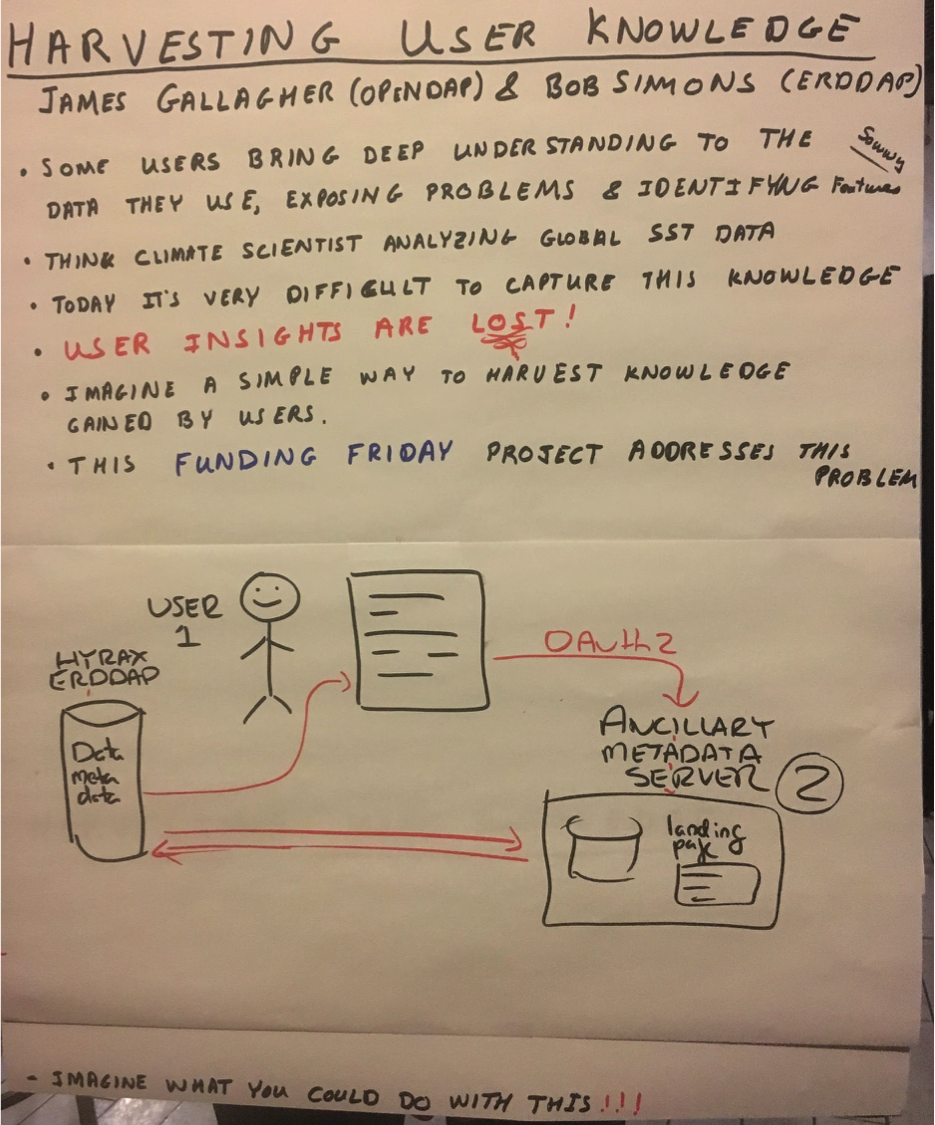 HARVESTING USER KNOWLEDGE
JAMES GALLAGHER (OPENDAP) & BOB SIMONS (ERDDAP)
• SOME USERS BRING DEEP UNDERSTANDING TO THE
DATA THEY USE, EXPOSING PROBLEMS & IDENTIFYNG Features
• THINK CLIMATE SCIENTIST ANALYZING GLOBAL SST DATA
• TODAY IT'S VERY DIFFICULT TO CAPTURE THIS KNOWLEDGE
• USER INSIGHTS ARE LOST!
• IMAGINE A SIMPLE WAY TO HARVEST KNOWLEDGE
GAINED BY USERS.
• THIS FUNDING FRIDAY PROJECT ADDRESSES THIS
PROBLEM
USER
1
HYRAX
ERDDAP
Data
meta
data
OAuth2
ANCILLARY
METADATA
SERVER 2
landing
page
- IMAGINE WHAT YOU COULD DO WITH THIS!!!